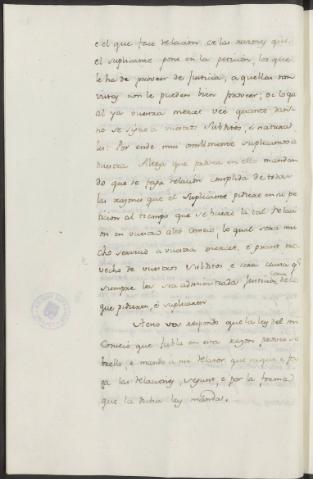 e el que face relacion, ce las razones que
el suplicante pone en la peticion, los que
le ha de proveer de Justicia, a quellas non
vistas non le pueden bien proveer, de lo qual
al ya vuestra merced vee quanto dan-
no se sigue a vuestros subditos, e natura-
les: Por ende mui omilmente suplicamos a
vuestra Alteza que provea en ello mandan-
do que se faga relacion complida de todas
las razones que el suplicante pidiere en su pe-
ticion al tiempo que se hiciere la tal relaci-
on en vuestro alto Consejo, lo qual será mu-
cho servicio a vuestra merced, e grant pro-
vecho de vuestros subditos, e será causa q.e
siempre les sea administrada Justicia de lo
que pidieren, e suplicaren
A esto vos respondo que la ley del mi
Consejo que fabla en esta razon, provee so-
bre ello, e mando a mi relator que saque e fa-
ga las relaciones, segunt, e por la forma
que la dicha ley manda.